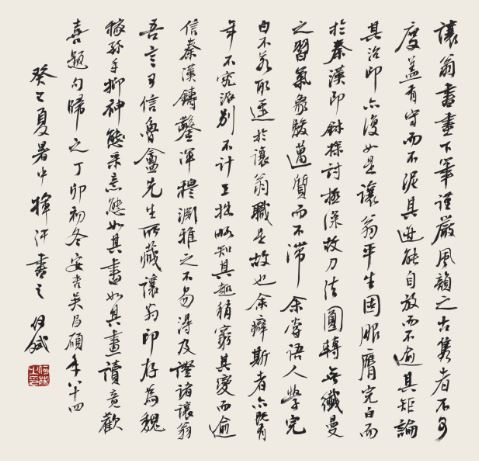 讓翁書畫下筆謹嚴風韻之古雋者不可
度蓋有守而不泥其迹能自放而不逾其矩論
其治印亦復如是讓翁平生固服膺完白而
於秦漢印鉨探討極深故刀法圓轉無纖曼
之習氣象駿邁質而不滯余嘗語人學完
白不若取逕於讓翁職是故也余癖斯者亦既有
年不究派別不計工拙略知其趣稍窮其變而逾
信秦漢鑄鑿渾穆淵雅之不易得及證諸讓翁
吾言可信魯盦先生所藏讓翁印存為魏
稼孫手抑神態如其書如其畫讀竟歡
喜題句歸之丁卯初冬安吉吳昌碩年八十四
癸巳夏暑中揮汗書之